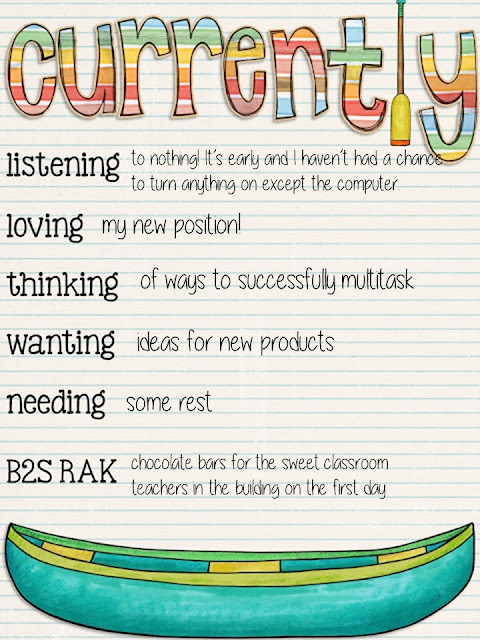 currently
listening to nothing! It's early and I haven't had a chance
to turn anything on except the computer.
loving my new position!
thinking of ways to successfully multitask
wanting ideas for new products
needing some rest
B2S RAK chocolate bars for the sweet classroom
teachers in the building on the first day